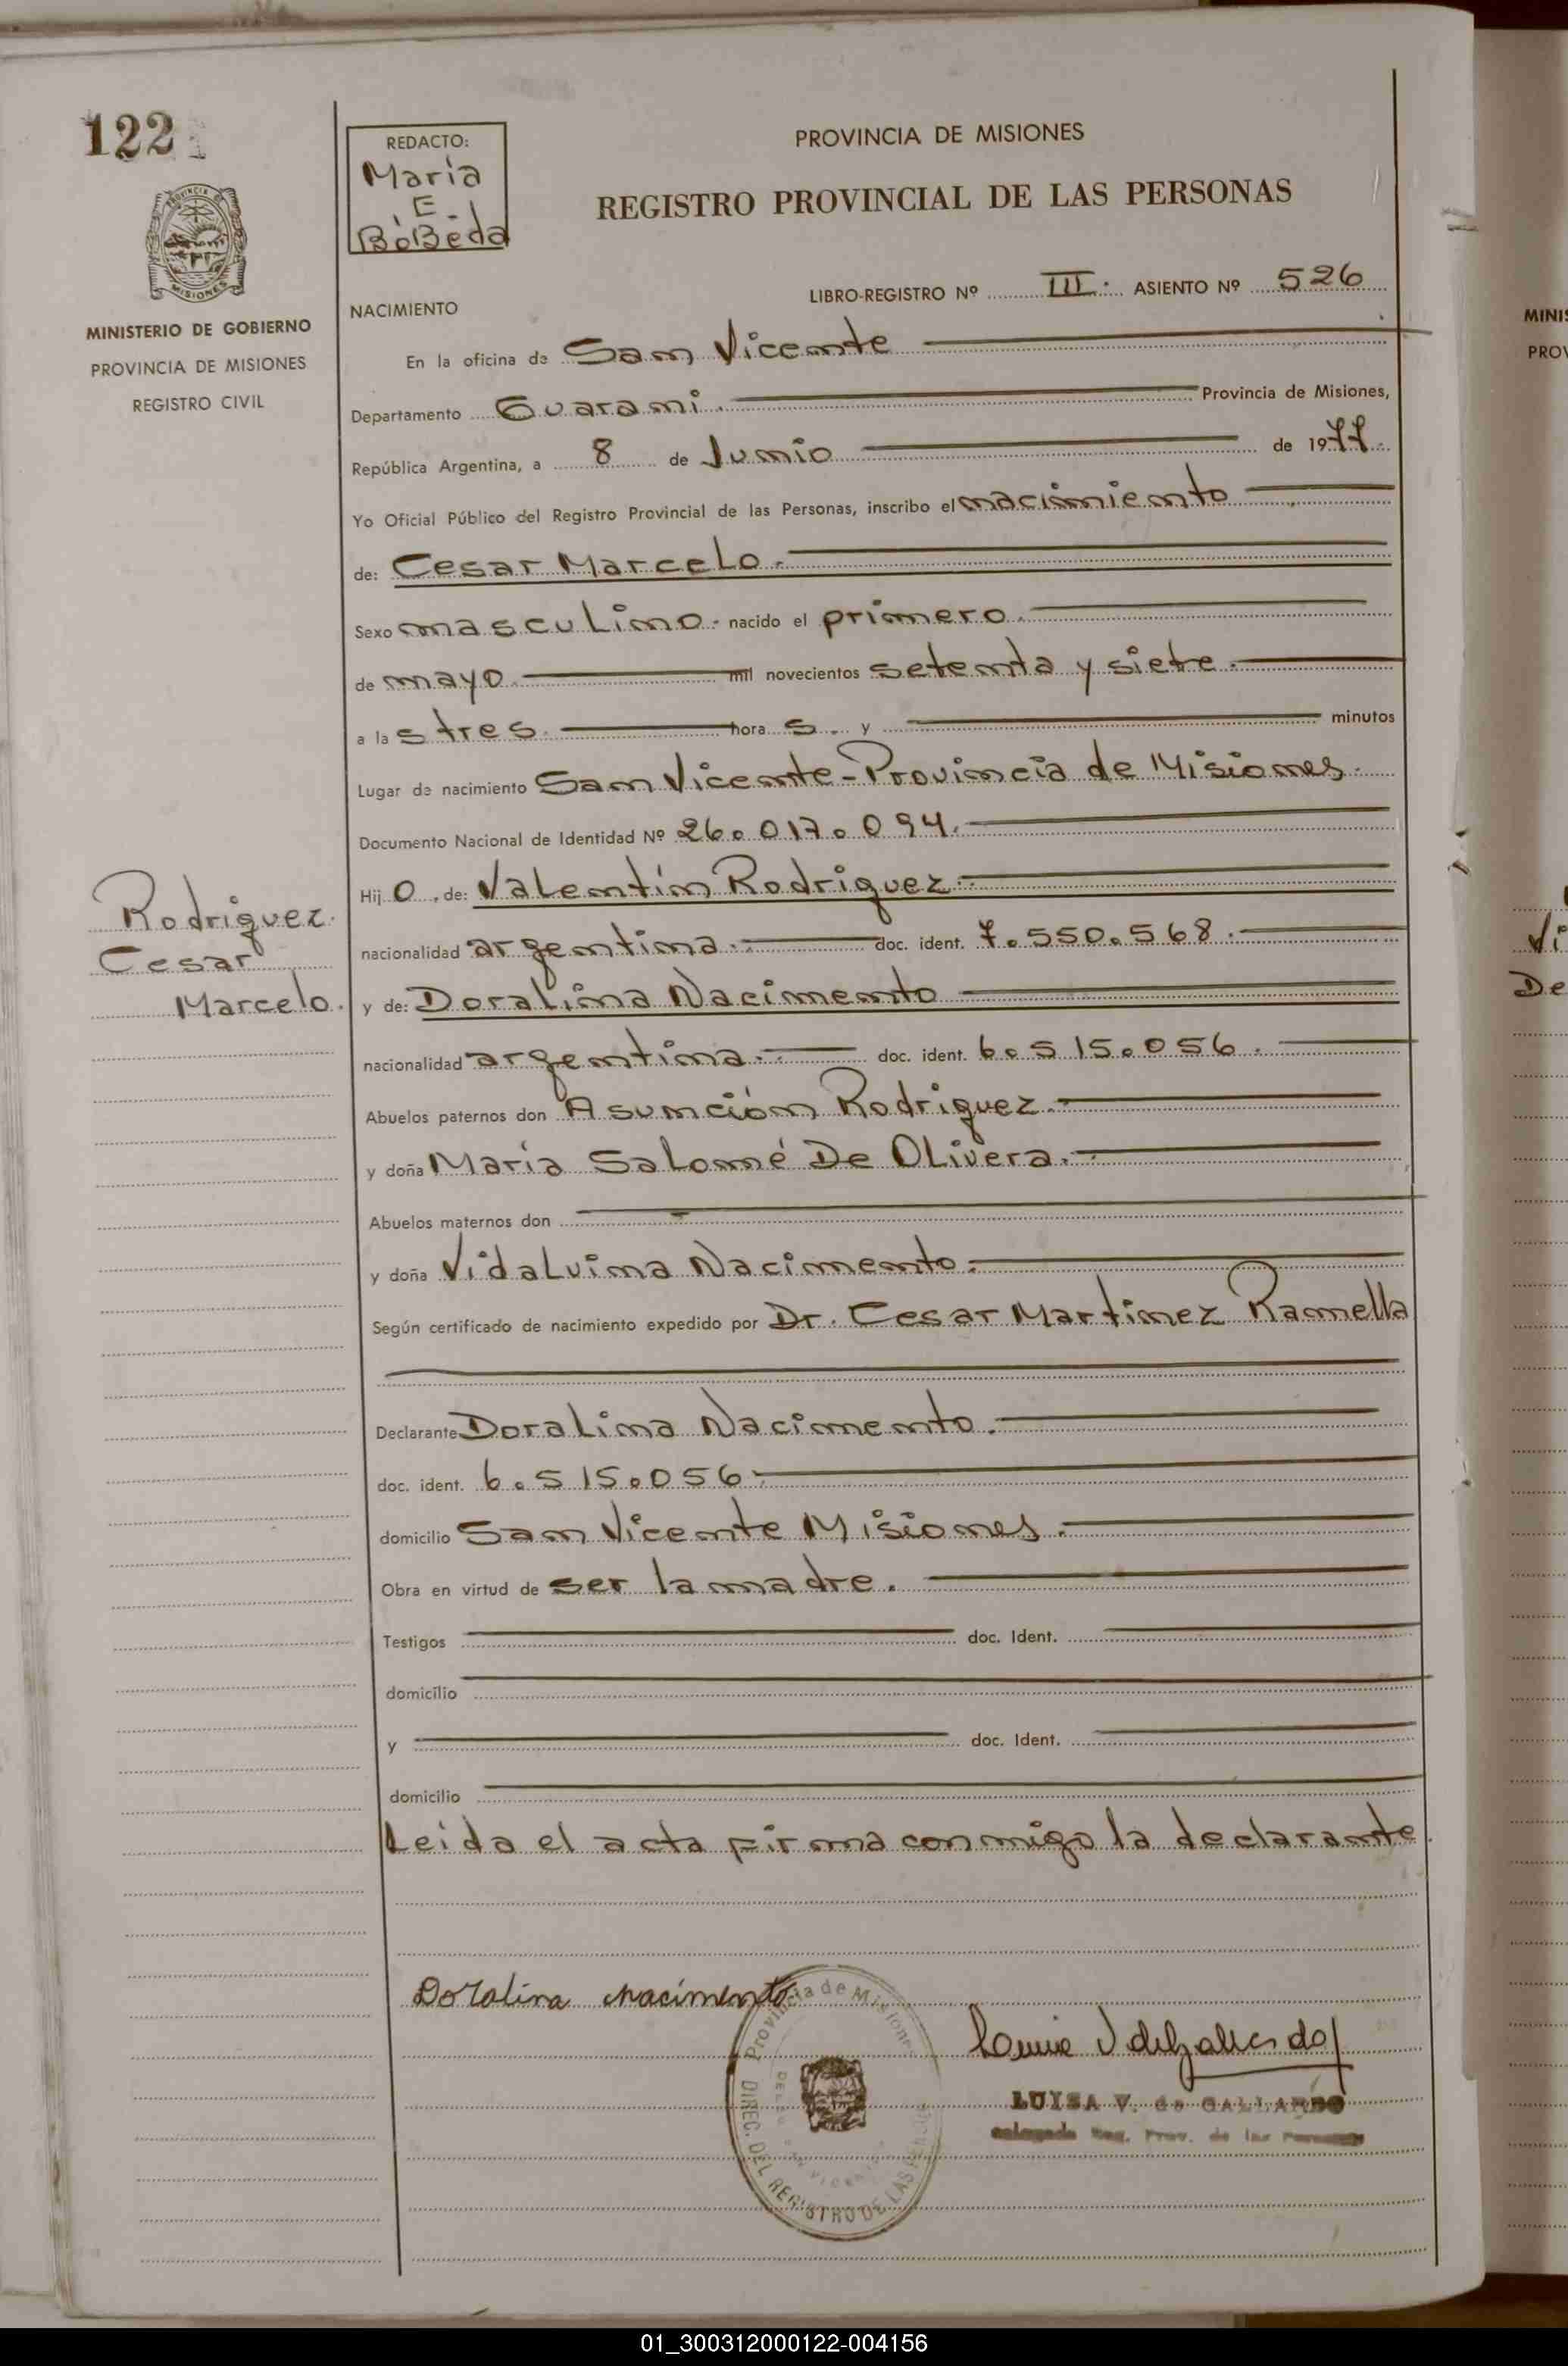 122
PROVINCIA
MISIONES
MINISTERIO DE GOBIERNO
PROVINCIA DE MISIONES
REGISTRO CIVIL
REDACTO:
María
E.
BóBeda
PROVINCIA DE MISIONES
REGISTRO PROVINCIAL DE LAS PERSONAS
LIBRO-REGISTRO Nº III. ASIENTO Nº 526
NACIMIENTO
En la oficina de San Vicente
Departamento Guarani. Provincia de Misiones,
República Argentina, a 8 de Junio de 1977.
Yo Oficial Público del Registro Provincial de las Personas, inscribo el nacimiento
de: Cesar Marcelo.
Sexo masculino. nacido el primero.
de mayo. mil novecientos setenta y siete.
a las tres. horas. y minutos
Lugar de nacimiento San Vicente-Provincia de Misiones.
Documento Nacional de Identidad Nº 26.017.094.
Hijo. de: Valentín Rodriguez.
nacionalidad argentina. doc. ident. 7.550.568.
y de: Doralina Nacimento
nacionalidad argentina. doc. ident. 6.515.056.
Abuelos paternos don Asunción Rodriguez.
y doña María Salomé De Olivera.
Abuelos maternos don
y doña Vidalvina Nacimento.
Según certificado de nacimiento expedido por Dr. Cesar Martinez Ramella
Declarante Doralina Nacimento.
doc. ident. 6.515.056.
domicilio San Vicente Misiones.
Obra en virtud de ser la madre.
Testigos doc. Ident.
domicilio
y doc. Ident.
domicilio
Leida el acta firma conmigo la declarante.
Rodriguez.
Cesar
Marcelo.
Doralina Nacimento
Provincia de Misiones
DIREC. DEL REGISTRO DE LAS
LUISA V. de GALLARDO
Delegada Reg. Prov. de las Personas
MINIS
PROV
Vi
De
01_300312000122-004156